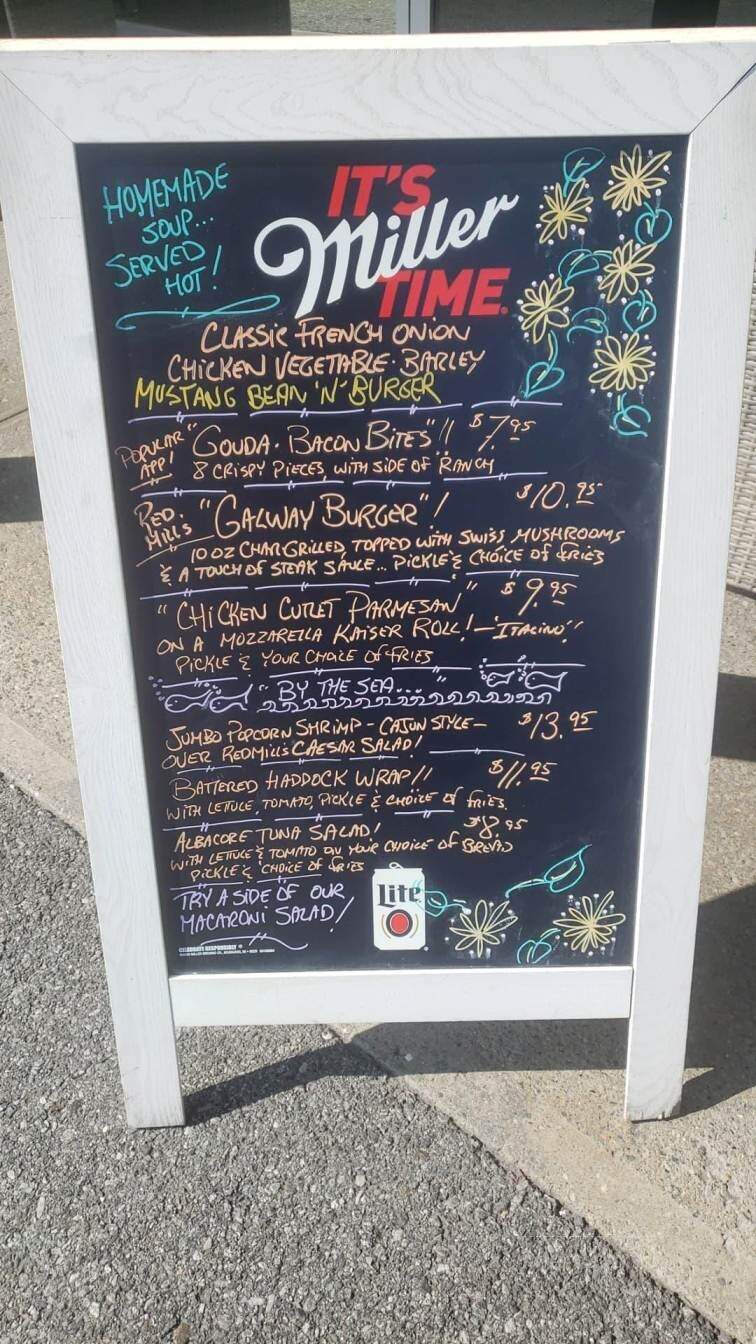 HOMEMADE
SOUP...
SERVED
HOT!
IT'S
Miller
TIME
CLASSIC FRENCH ONION
CHICKEN VEGETABLE · BARLEY
MUSTANG BEAN 'N' BURGER
POPULAR APP! "GOUDA · BACON BITES"!! $7.95
8 CRISPY PIECES, WITH SIDE OF RANCH
RED. MILLS "GALWAY BURGER"! $10.95
10 OZ CHARGRILLED, TOPPED WITH SWISS, MUSHROOMS
& A TOUCH OF STEAK SAUCE... PICKLE & CHOICE OF FRIES
"CHICKEN CUTLET PARMESAN" $9.95
ON A MOZZARELLA KAISER ROLL! —
PICKLE & YOUR CHOICE OF FRIES
"BY THE SEA..."
JUMBO POPCORN SHRIMP - CAJUN STYLE - $13.95
OVER REDMILLS CAESAR SALAD!
BATTERED HADDOCK WRAP!! $11.95
WITH LETTUCE, TOMATO, PICKLE & CHOICE OF FRIES.
ALBACORE TUNA SALAD! $8.95
WITH LETTUCE & TOMATO ON YOUR CHOICE OF BREAD
PICKLE & CHOICE OF FRIES
TRY A SIDE OF OUR
MACARONI SALAD!
Lite
CELEBRATE RESPONSIBLY